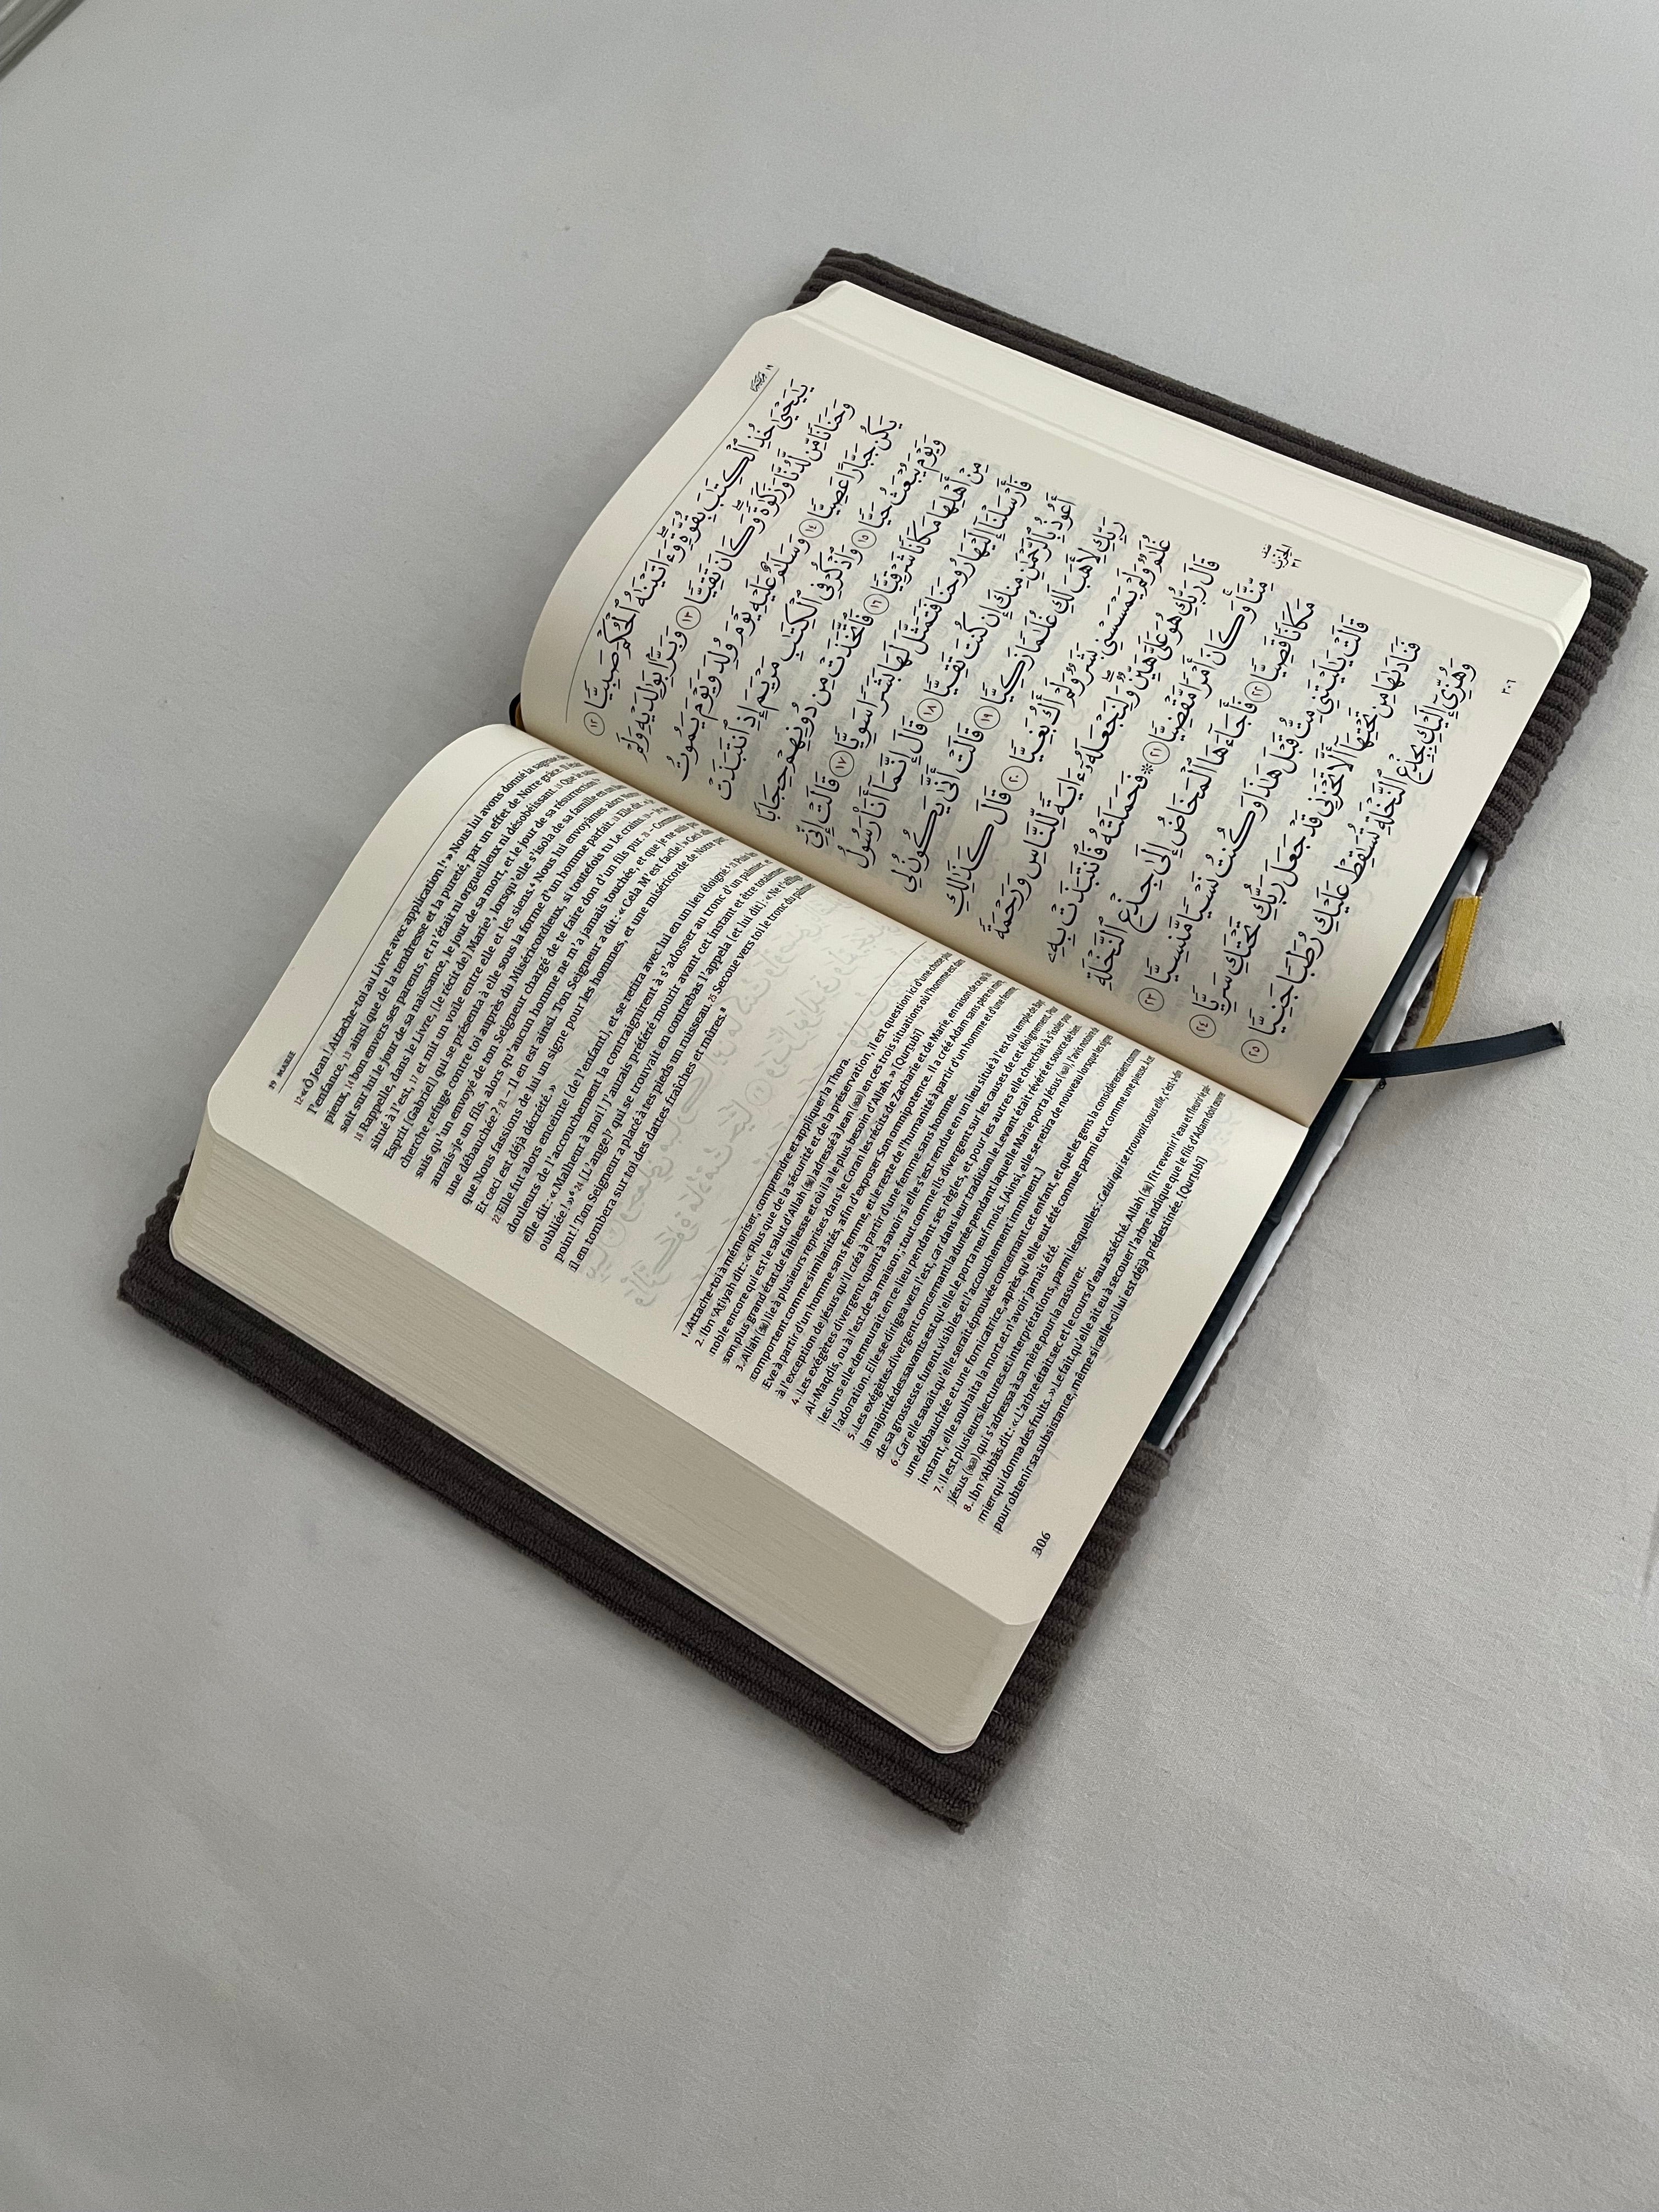 19 MARIE
12 « Ô Jean ! Attache-toi au Livre avec application¹ ! » Nous lui avons donné la sagesse
l'enfance, 13 ainsi que de la tendresse et la pureté, par un effet de Notre grâce. Il était
pieux, 14 bon envers ses parents, et n'était ni orgueilleux ni désobéissant. 15 Que le salut
soit sur lui le jour de sa naissance, le jour de sa mort, et le jour de sa résurrection² !
16 Rappelle, dans le Livre, [le récit de] Marie³, lorsqu'elle s'isola de sa famille en un lieu
situé à l'est, 17 et mit un voile entre elle et les siens.⁴ Nous lui envoyâmes alors Notre
Esprit [Gabriel] qui se présenta à elle sous la forme d'un homme parfait. 18 Elle dit : « Je
cherche refuge contre toi auprès du Miséricordieux, si toutefois tu Le crains. 19 – Je
suis qu'un envoyé de ton Seigneur chargé de te faire don d'un fils pur. 20 – Comment
aurais-je un fils, alors qu'aucun homme ne m'a jamais touchée, et que je ne suis pas
une débauchée ? 21 – Il en est ainsi. Ton Seigneur a dit : « Cela M'est facile ! » Ceci afin
que Nous fassions de lui un signe pour les hommes, et une miséricorde de Notre part
Et ceci est déjà décrété. »
22 Elle fut alors enceinte [de l'enfant], et se retira avec lui en un lieu éloigné.⁵ 23 Puis les
douleurs de l'accouchement la contraignirent à s'adosser au tronc d'un palmier, et
elle dit : « Malheur à moi ! J'aurais préféré mourir avant cet instant et être totalement
oubliée ! »⁶ 24 [L'ange]⁷ qui se trouvait en contrebas l'appela (et lui dit) : « Ne t'afflige
point ! Ton Seigneur a placé à tes pieds un ruisseau. 25 Secoue vers toi le tronc du palmier
il en tombera sur toi des dattes fraîches et mûres.⁸
1. Attache-toi à mémoriser, comprendre et appliquer la Thora.
2. Ibn ʿAtiyah dit : « Plus que de la sécurité et de la préservation, il est question ici d'une chose plus
noble encore qui est le salut d'Allah (ﷻ) adressé à Jean (ﷺ) en ces trois situations où l'homme est dans
son plus grand état de faiblesse et où il a le plus besoin d'Allah. » [Qurtubî]
3. Allah (ﷻ) lie à plusieurs reprises dans le Coran les récits de Zacharie et de Marie, en raison de ce qu'ils
comportent comme similarités, afin d'exposer Son omnipotence. Il a créé Adam sans père ni mère,
Eve à partir d'un homme sans femme, et le reste de l'humanité à partir d'un homme et d'une femme
à l'exception de Jésus qu'Il créa à partir d'une femme sans homme.
4. Les exégètes divergent quant à savoir si elle s'est rendue en un lieu situé à l'est du temple de Bayt
Al-Maqdis, ou à l'est de sa maison ; tout comme ils divergent sur les causes de cet éloignement. Pour
les uns elle demeurait en ce lieu pendant ses règles, et pour les autres elle cherchait à s'isoler pour
l'adoration. Elle se dirigea vers l'est, car dans leur tradition le Levant était révéré et source de bien.
5. Les exégètes divergent concernant la durée pendant laquelle Marie porta Jésus (ﷺ), l'avis notoire de
la majorité des savants est qu'elle le porta neuf mois. [Ainsi, elle se retira de nouveau lorsque les signes
de sa grossesse furent visibles et l'accouchement imminent.]
6. Car elle savait qu'elle serait éprouvée concernant cet enfant, et que les gens la considéreraient comme
une débauchée et une fornicatrice, après qu'elle eut été connue parmi eux comme une pieuse. À cet
instant, elle souhaita la mort et n'avoir jamais été.
7. Il est plusieurs lectures et interprétations, parmi lesquelles : Celui qui se trouvait sous elle, c'est-à-dire
Jésus (ﷺ) qui s'adressa à sa mère, pour la rassurer.
8. Ibn ʿAbbâs dit : « L'arbre était sec et le cours d'eau asséché. Allah (ﷻ) fit revenir l'eau et fleurir le palmier
mier qui donna des fruits. » Le fait qu'elle ait eu à secouer l'arbre indique que le fils d'Adam doit œuvrer
pour obtenir sa subsistance, même si celle-ci lui est déjà prédestinée. [Qurtubî]
306
١٩
يَـٰيَحْيَىٰ خُذِ ٱلْكِتَـٰبَ بِقُوَّةٍ وَءَاتَيْنَـٰهُ ٱلْحُكْمَ صَبِيًّا ١٢
وَحَنَانًا مِّن لَّدُنَّا وَزَكَوٰةً وَكَانَ تَقِيًّا ١٣ وَبَرًّۢا بِوَٰلِدَيْهِ وَلَمْ
يَكُن جَبَّارًا عَصِيًّا ١٤ وَسَلَـٰمٌ عَلَيْهِ يَوْمَ وُلِدَ وَيَوْمَ يَمُوتُ
وَيَوْمَ يُبْعَثُ حَيًّا ١٥ وَٱذْكُرْ فِى ٱلْكِتَـٰبِ مَرْيَمَ إِذِ ٱنتَبَذَتْ
مِنْ أَهْلِهَا مَكَانًا شَرْقِيًّا ١٦ فَٱتَّخَذَتْ مِن دُونِهِمْ حِجَابًا
فَأَرْسَلْنَآ إِلَيْهَا رُوحَنَا فَتَمَثَّلَ لَهَا بَشَرًا سَوِيًّا ١٧ قَالَتْ إِنِّىٓ
أَعُوذُ بِٱلرَّحْمَـٰنِ مِنكَ إِن كُنتَ تَقِيًّا ١٨ قَالَ إِنَّمَآ أَنَا۠ رَسُولُ
رَبِّكِ لِأَهَبَ لَكِ غُلَـٰمًا زَكِيًّا ١٩ قَالَتْ أَنَّىٰ يَكُونُ لِى
غُلَـٰمٌ وَلَمْ يَمْسَسْنِى بَشَرٌ وَلَمْ أَكُ بَغِيًّا ٢٠ قَالَ كَذَٰلِكِ
قَالَ رَبُّكِ هُوَ عَلَىَّ هَيِّنٌ وَلِنَجْعَلَهُۥٓ ءَايَةً لِّلنَّاسِ وَرَحْمَةً
مِّنَّا وَكَانَ أَمْرًا مَّقْضِيًّا ٢١ ۞ فَحَمَلَتْهُ فَٱنتَبَذَتْ بِهِۦ
مَكَانًا قَصِيًّا ٢٢ فَأَجَآءَهَا ٱلْمَخَاضُ إِلَىٰ جِذْعِ ٱلنَّخْلَةِ
قَالَتْ يَـٰلَيْتَنِى مِتُّ قَبْلَ هَـٰذَا وَكُنتُ نَسْيًا مَّنسِيًّا ٢٣
فَنَادَىٰهَا مِن تَحْتِهَآ أَلَّا تَحْزَنِى قَدْ جَعَلَ رَبُّكِ تَحْتَكِ سَرِيًّا ٢٤
وَهُزِّىٓ إِلَيْكِ بِجِذْعِ ٱلنَّخْلَةِ تُسَـٰقِطْ عَلَيْكِ رُطَبًا جَنِيًّا ٢٥
٣٠٦